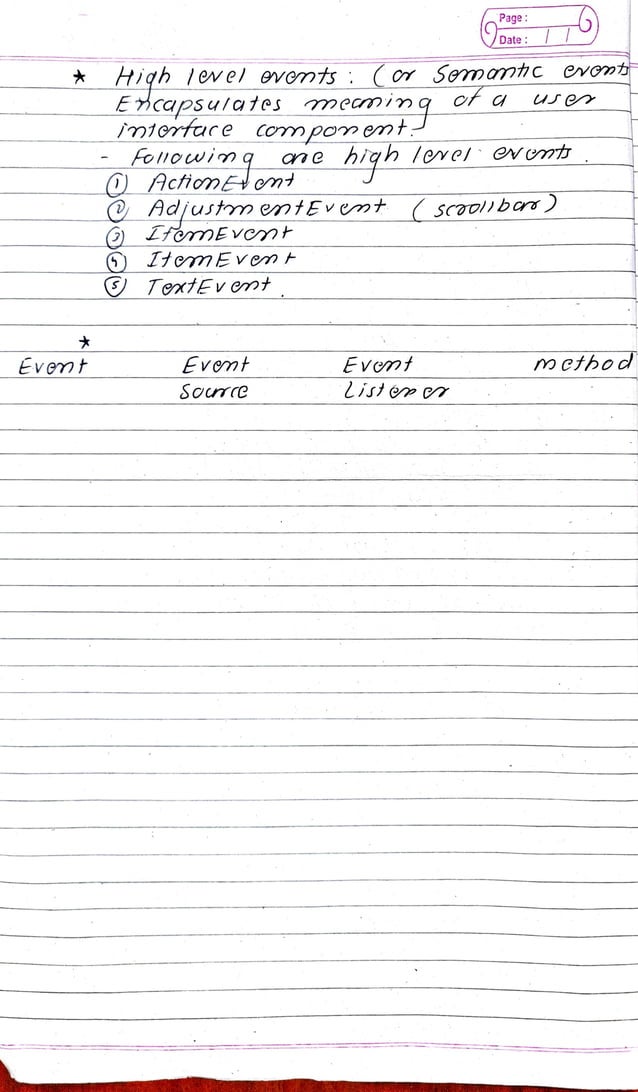 Page :
Date : / /
* High level events : (or Semantic events
Encapsulates meaning of a user
interface component.
- Following are high level events.
① ActionEvent
② AdjustmentEvent (scrollbar)
③ ItemEvent
④ ItemEvent
⑤ TextEvent.
*
Event Event Event method
Source Listener